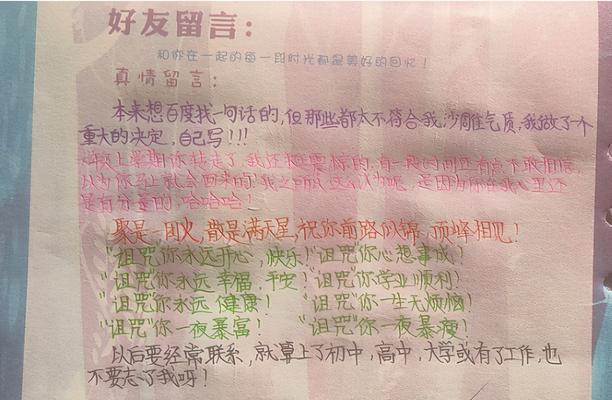 好友留言：
和你在一起的每一段时光都是美好的回忆！
真情留言：
本来想百度找一句话的，但那些都太不符合我沙雕气质，我做了一个
重大的决定，自己写！！！
上学期你转走了，我还挺震惊的，有一段时间还有点不敢相信，
以为你马上就会回来的！我之所以这么认为呢，是因为你在我心里还
是有分量的，哈哈哈！
聚是一团火，散是满天星，祝你前路似锦，顶峰相见！
"诅咒"你永远开心，快乐！"诅咒"你心想事成！
"诅咒"你永远幸福，平安！"诅咒"你学业顺利！
"诅咒"你永远健康！ "诅咒"你一生无烦恼！
"诅咒"你一夜暴富！ "诅咒"你一夜暴瘦！
以后要经常联系，就算上了初中，高中，大学或有了工作，也
不要忘了我呀！